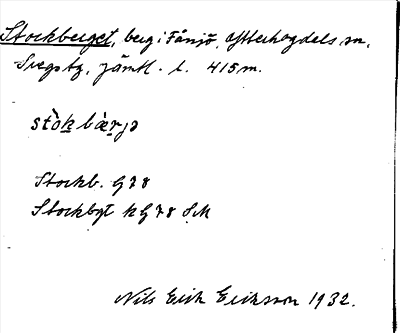 Stockberget, berg i Fånsjö, Ytterhogdals sn,
Svegs tg, Jämtl. l. 415 m.
stòk bæ̀rjə
Stockb. G 78
Stockbgt k G 78 SM
Nils Erik Eriksson 1932.